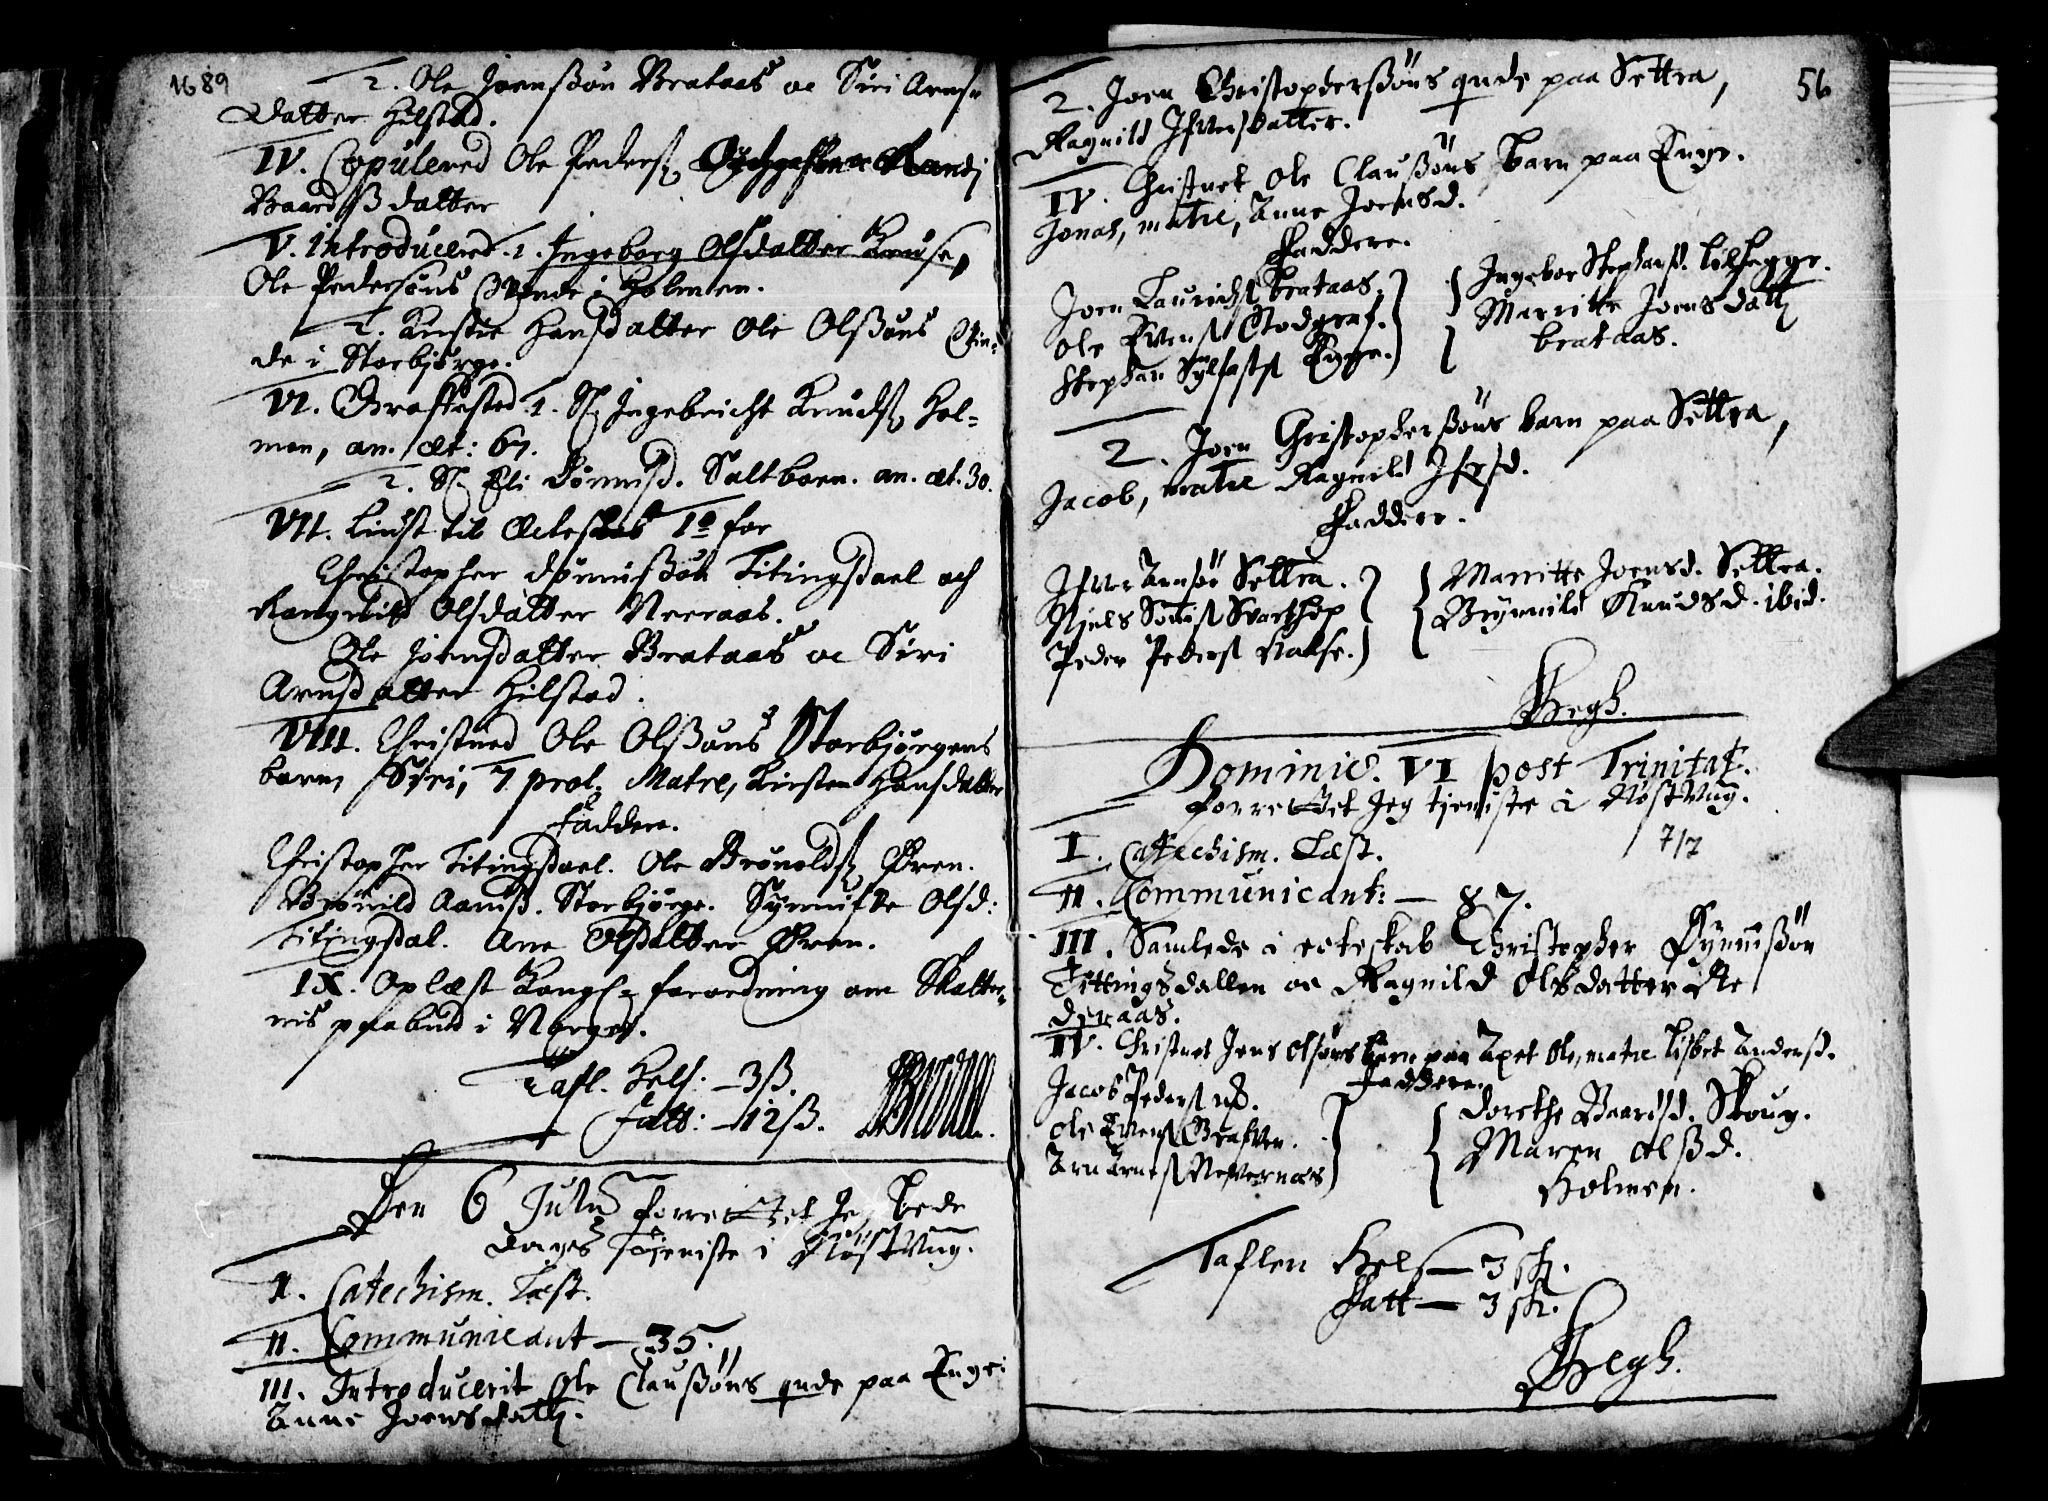 1689
2. Ole Joensßøn Brataas oc Siri Arns-
datter Hilstad.
IV. Copulered Ole Peders. Randi
Baardsdatter
V. Introducered. 1. Ingeborg Olsdatter Kruse,
Ole Pedersøns Qvinde i Holmen.
2. Kirstie Hansdatter Ole Olßøns Qvin-
de i Storbjørge.
VI. Graffæsted. 1. Sl. Ingebricht Knuds. Hol-
men, an. æt: 67.
2. Sl. Eli Dønnisd. Saltboen. an. æt. 30.
VII. Liust til Ecteskab 1o for
Christopher Dønnißøn Titingsdael och
Rangnild Olsdatter Neeraas.
Ole Joensdatter Brataas oc Siri
Arnsdatter Hilstad.
VIII. Christned Ole Olßøns Storbjørgens
barn, Siri, 7 prol. Matre, Kirsten Hansdatter
Faddere.
Christopher Titingsdael. Ole Brønolds. Øren.
Brønild Aamß. Storbjørge. Synnifve Olsd:
Titingsdal. Ane Olsdatter Øren.
IX. Oplæst Kongl. forordning om Skatter-
nis paabud i Norge.
Tafl. Hels: - 3ß.
Fatt: - 12ß.
Den 6 Julii forrettet Jeg Bede
Dages Tjeniste i Røstvug.
II. Catechism. Læst.
II. Communicant - 35.
III. Introducerit Ole Claußøns qnde paa Enge:
Anne Joens datt.
56
2. Joen Christopherßøns qnde paa Settra,
Ragnild Ifversdatter.
IV. Christnet Ole Claußøns barn paa Enge.
Jonas, matre, Anne Joensd.
Faddere.
Joen Laurichs brataas.
Ole Evens Stodgraf.
Stephan Sylfasts Enge.
Ingebor Stephansd. Lilhegge.
Marritte Joens datt
brataas.
2. Joen Christopherßøns barn paa Settra,
Jacob, matre Ragnild Ifersd.
Faddere.
Ifver Arnsøn Settra.
Niels Svarthop
Peder Peders
Marritte Joensd. Settra.
Brynnild Knudsd. ibid.
Hegh.
Dominic. VI post Trinitat.
forrettet Jeg tjeniste i Røstvug.
7/7
I. Catechism. Læst.
II. Communicant: - 87.
III. Samlede i ecteskab Christopher Dynnißøn
Tittingsdallen oc Ragnild Olsdatter Ne
deraas.
IV. Christnet Jens Olsøns barn paa Axet Ole, matre Lisbet Andersd.
Faddere.
Jacob Peders
Ole Evens Grafven.
Arn Arnes Nevernæs
Dorethe Baardsd. Skoug.
Maren Olßd.
Holmen.
Taflen Hels - 3 sk.
Fatt - 3 sk.
Hegh.